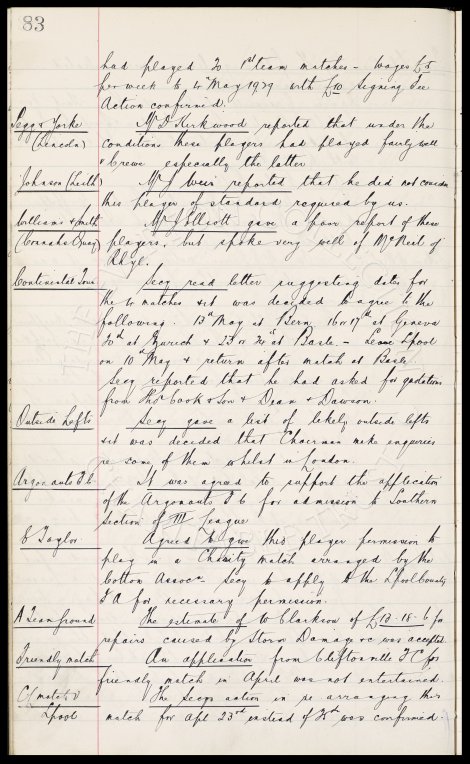 83
had played 20 1st team matches - wages £5
per week to 4th May 1929 with £10 Signing Fee
Action confirmed.
Pegg & Yorke Mr D Kirkwood reported that under the
(Lincoln) conditions these players had played fairly well
& Crewe especially the latter
Johnson (Leith) Mr J Weir reported that he did not consider
this player of standard required by us.
Williams & Smith Mr J Elliott gave a poor report of these
(Connahs Quay) players, but spoke very well of McNeil of
Rhyl.
Continental Tour Secy read letter suggesting dates for
the 4 matches & it was decided to agree to the
following. 13th May at Bern, 16 or 17th at Geneva
20th at Zurich & 23 or 24th at Basle - Leave Lpool
on 10th May & return after match at Basle.
Secy reported that he had asked for quotations
from Thos Cook & Son & Dean & Dawson.
Outside Lefts Secy gave a list of likely outside lefts
& it was decided that Chairman make enquiries
re some of them whilst in London.
Argonauts F.C. It was agreed to support the application
of the Argonauts F C for admission to Southern
Section of III League
C Taylor Agreed to give this player permission to
play in a Charity match arranged by the
Cotton Assocn. Secy to apply to the Lpool County
F A for necessary permission.
A Team ground The estimate of W Clarkson of £13-18-6 for
repairs caused by Storm Damage &c was accepted
Friendly match An application from Cliftonville F C for
friendly match in April was not entertained.
C/ match v The Secys action in re arranging this
Lpool match for Apl 23rd instead of 20th was confirmed